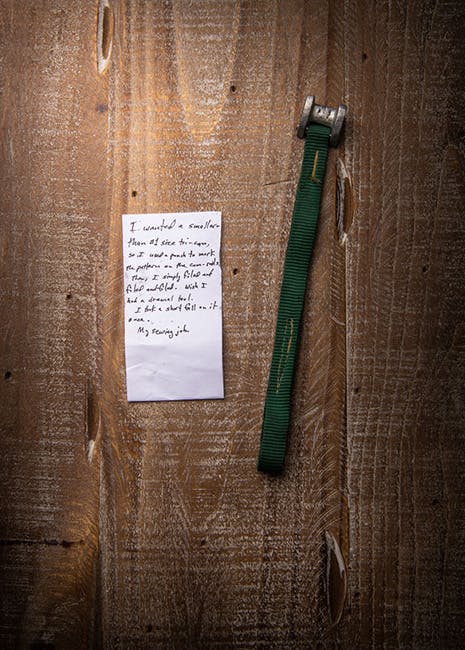 I wanted a smaller
than #1 size tri-cam,
so I used a punch to mark
the pattern on the cam-rails.
Then, I simply filed and
filed and filed. Wish I
had a dremel tool.
I took a short fall on it
once.
My sewing job.